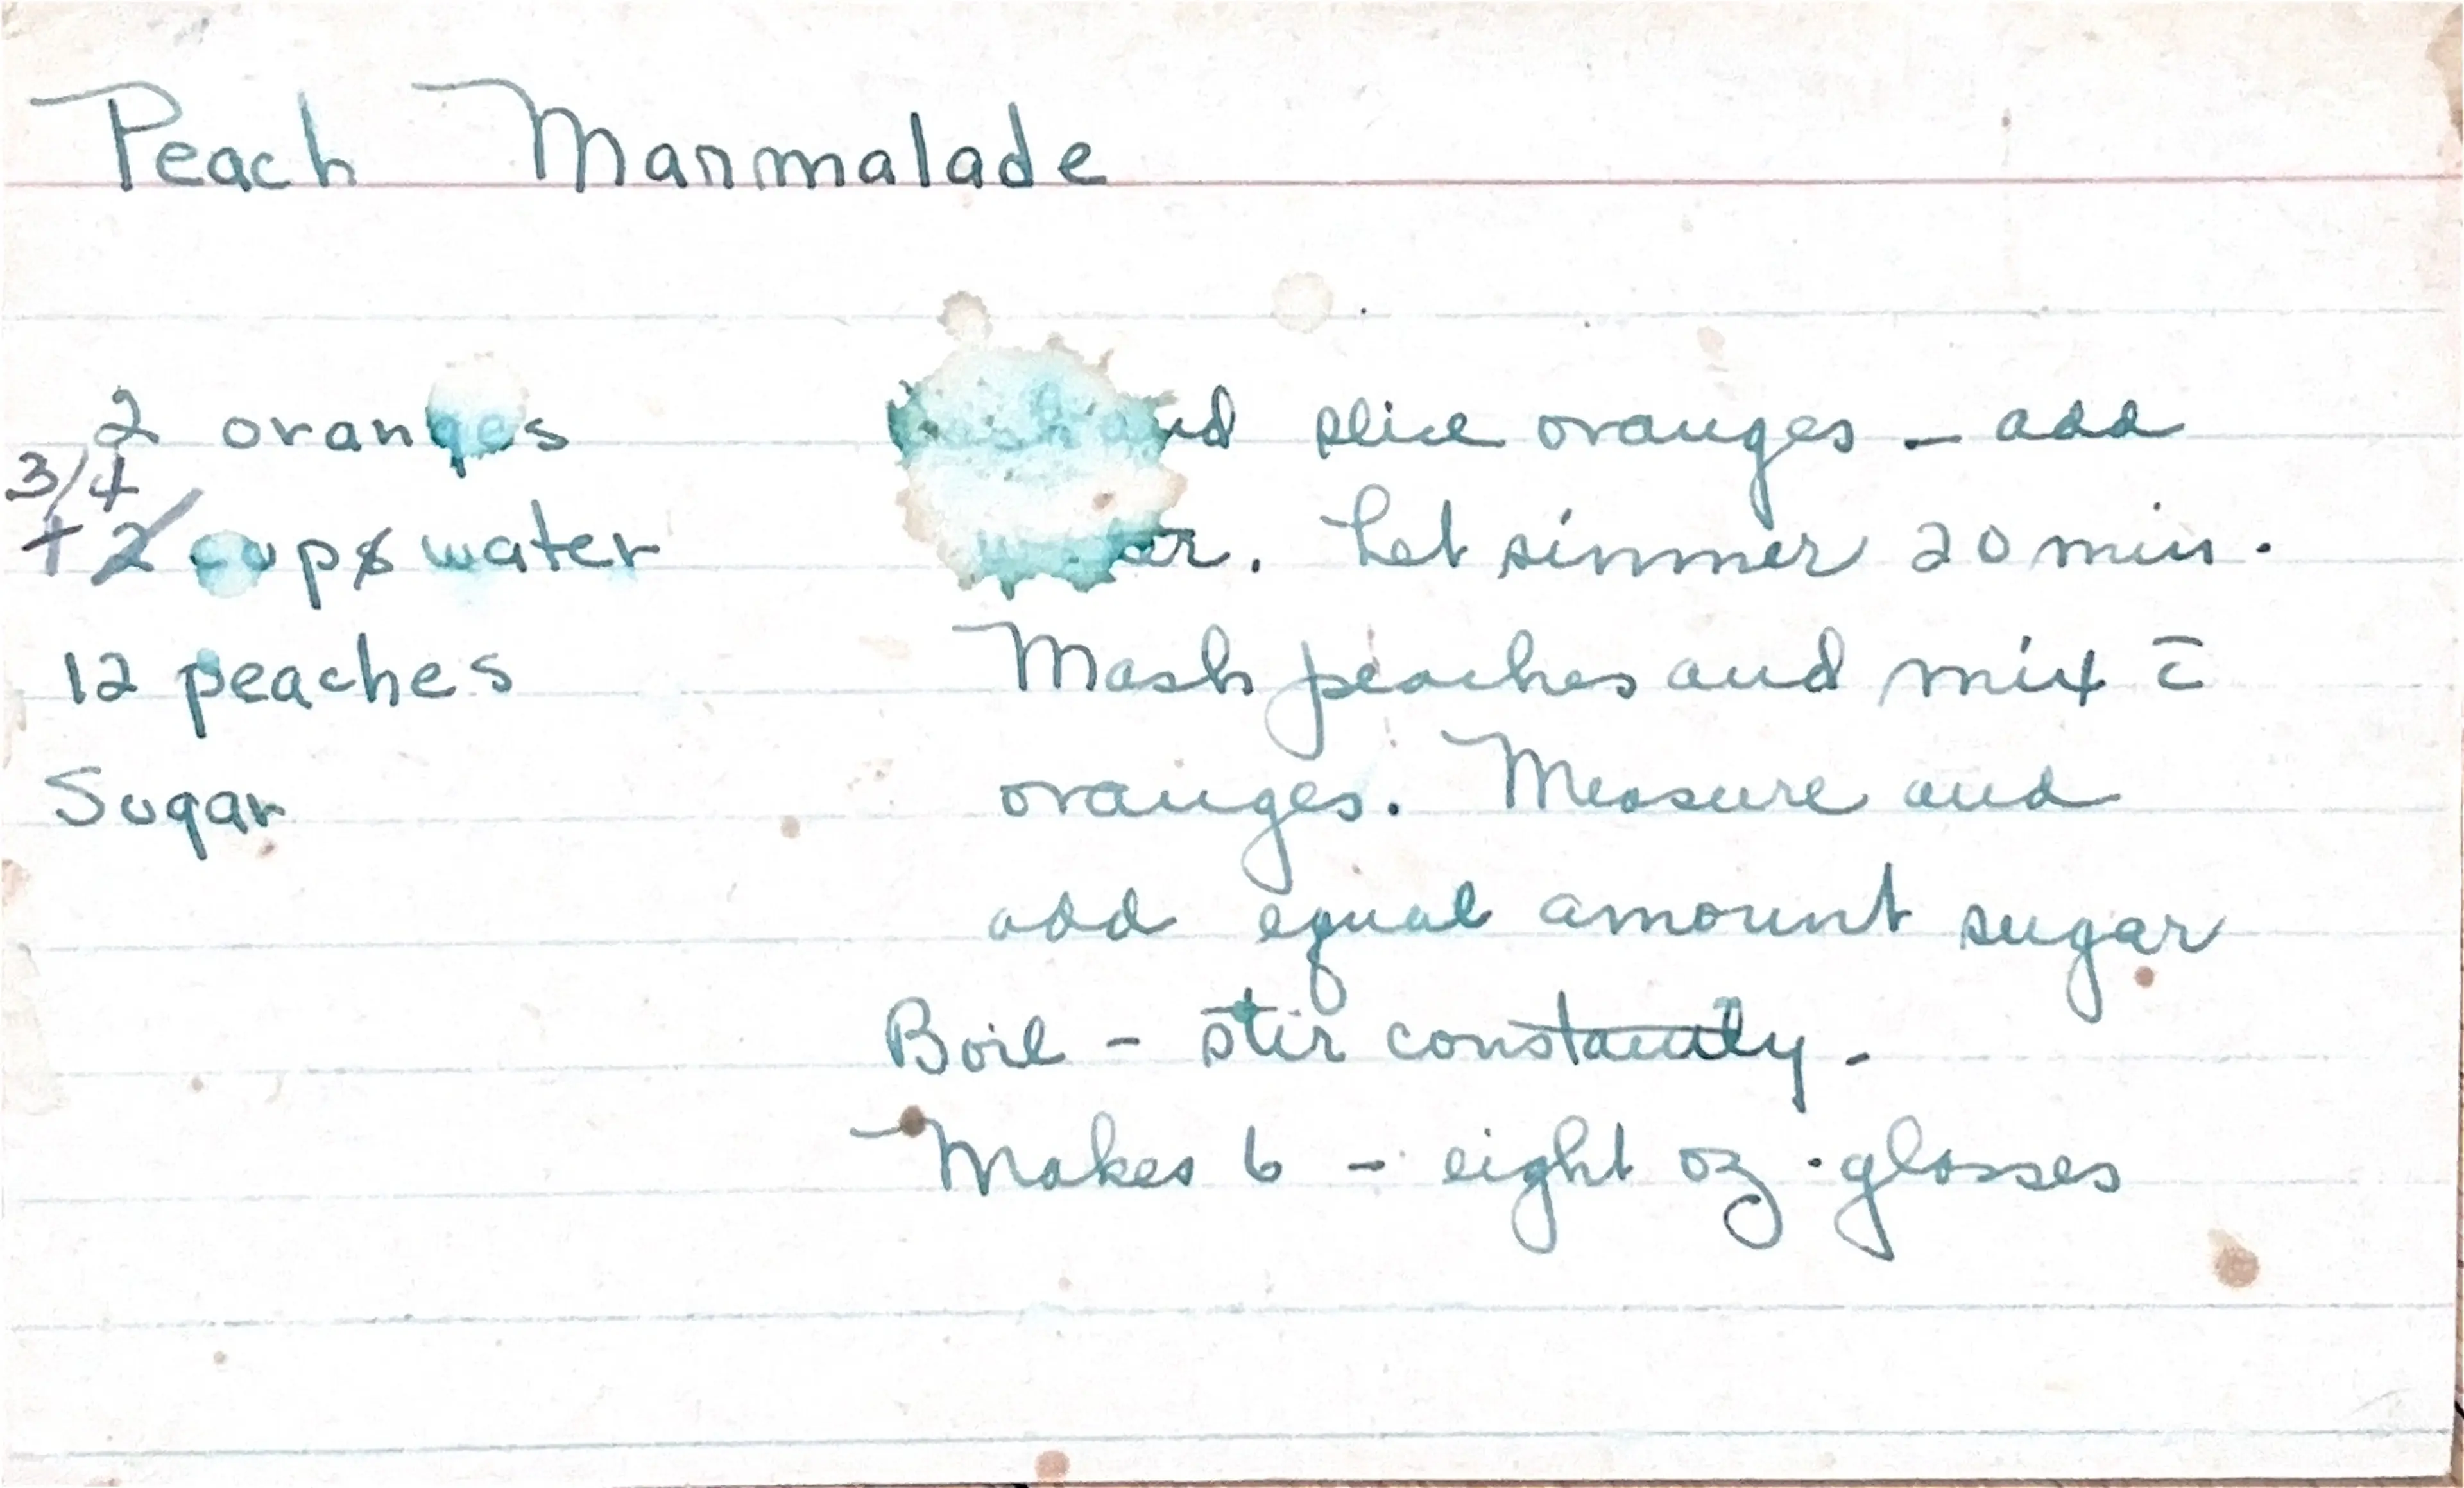 Peach Marmalade
2 oranges
3/4
+ 2 cups water
12 peaches
Sugar
Wash and slice oranges - add
water. Let simmer 20 min.
Mash peaches and mix c̄
oranges. Measure and
add equal amount sugar
Boil - stir constantly.
Makes 6 - eight oz. glasses